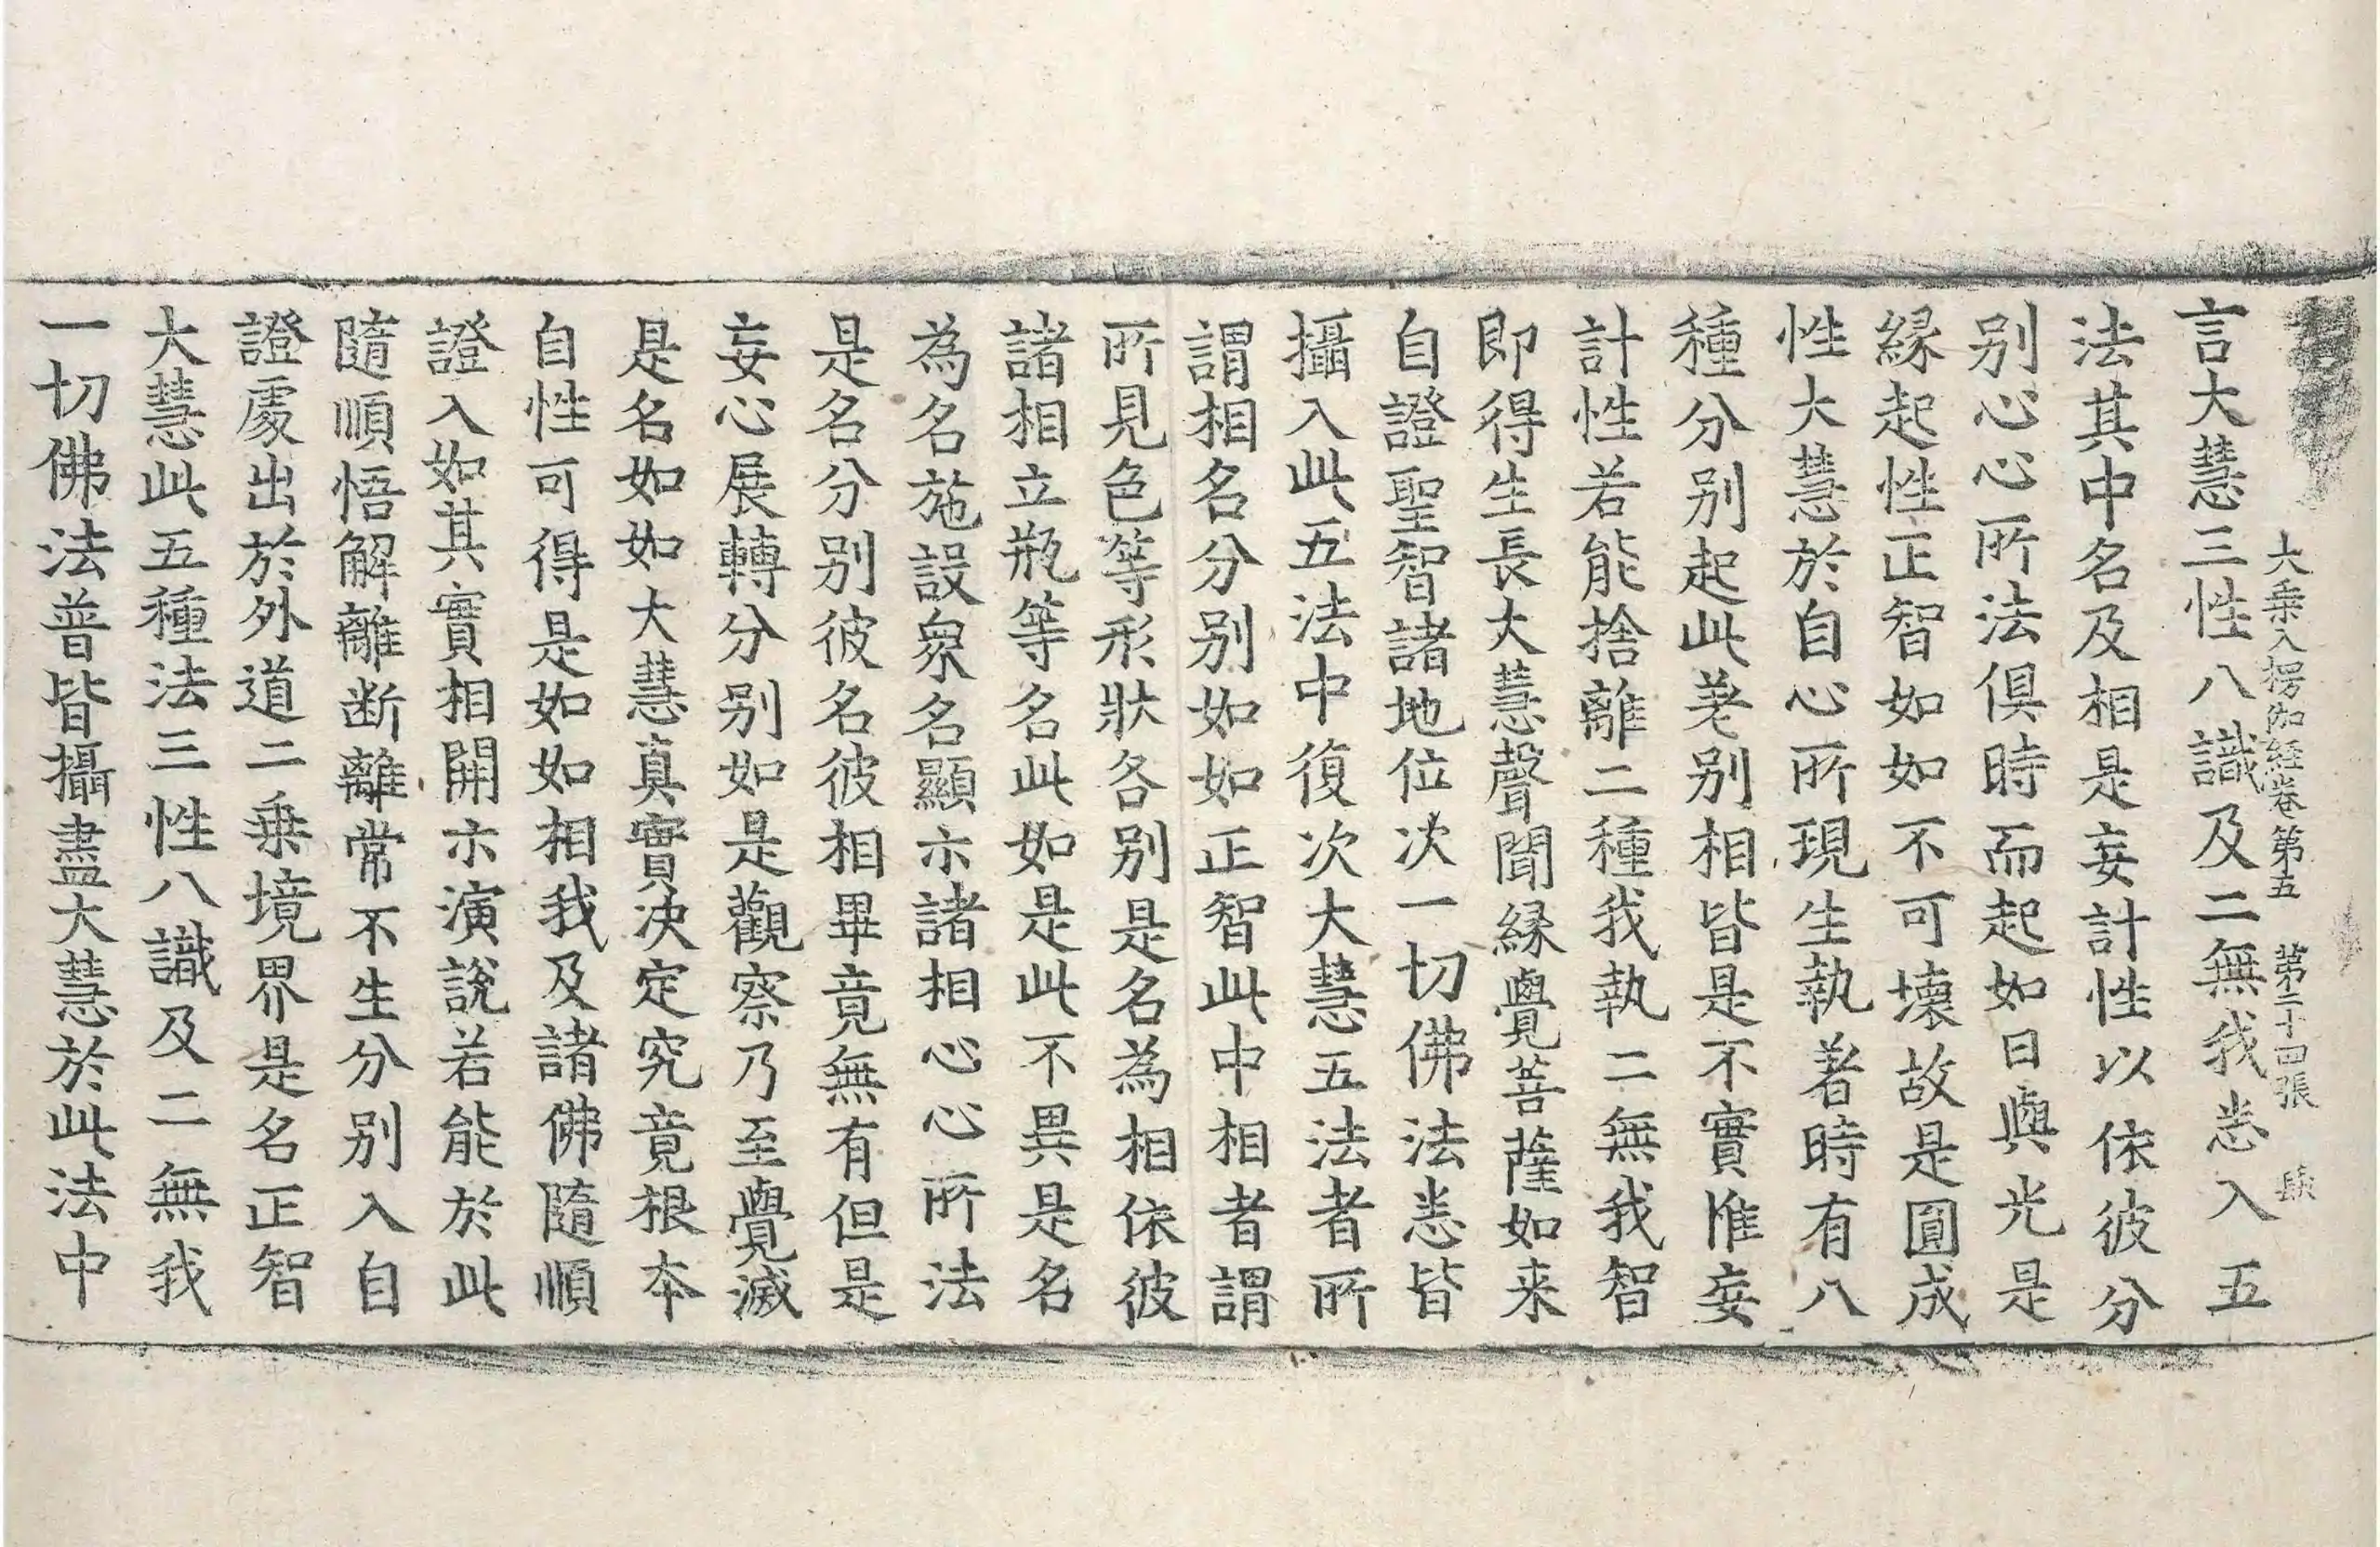 大乗入楞伽経卷第五 第二十四張
言大慧三性八識及二無我悉入五
法其中名及相是妄計性以依彼分
别心心所法俱時而起如日與光是
縁起性正智如如不可壞故是圓成
性大慧於自心所現生執著時有八
種分别起此差别相皆是不實惟妄
計性若能捨離二種我執二無我智
即得生長大慧聲聞縁覺菩薩如来
自證聖智諸地位次一切佛法悉皆
攝入此五法中復次大慧五法者所
謂相名分别如如正智此中相者謂
所見色等形狀各别是名為相依彼
諸相立瓶等名此如是此不異是名
為名施設衆名顯示諸相心心所法
是名分别彼名彼相畢竟無有但是
妄心展轉分别如是觀察乃至覺滅
是名如如大慧真實决定究竟根本
自性可得是如如相我及諸佛隨順
證入如其實相開示演說若能於此
隨順悟解離断離常不生分别入自
證處出於外道二乗境界是名正智
大慧此五種法三性八識及二無我
一切佛法普皆攝盡大慧於此法中